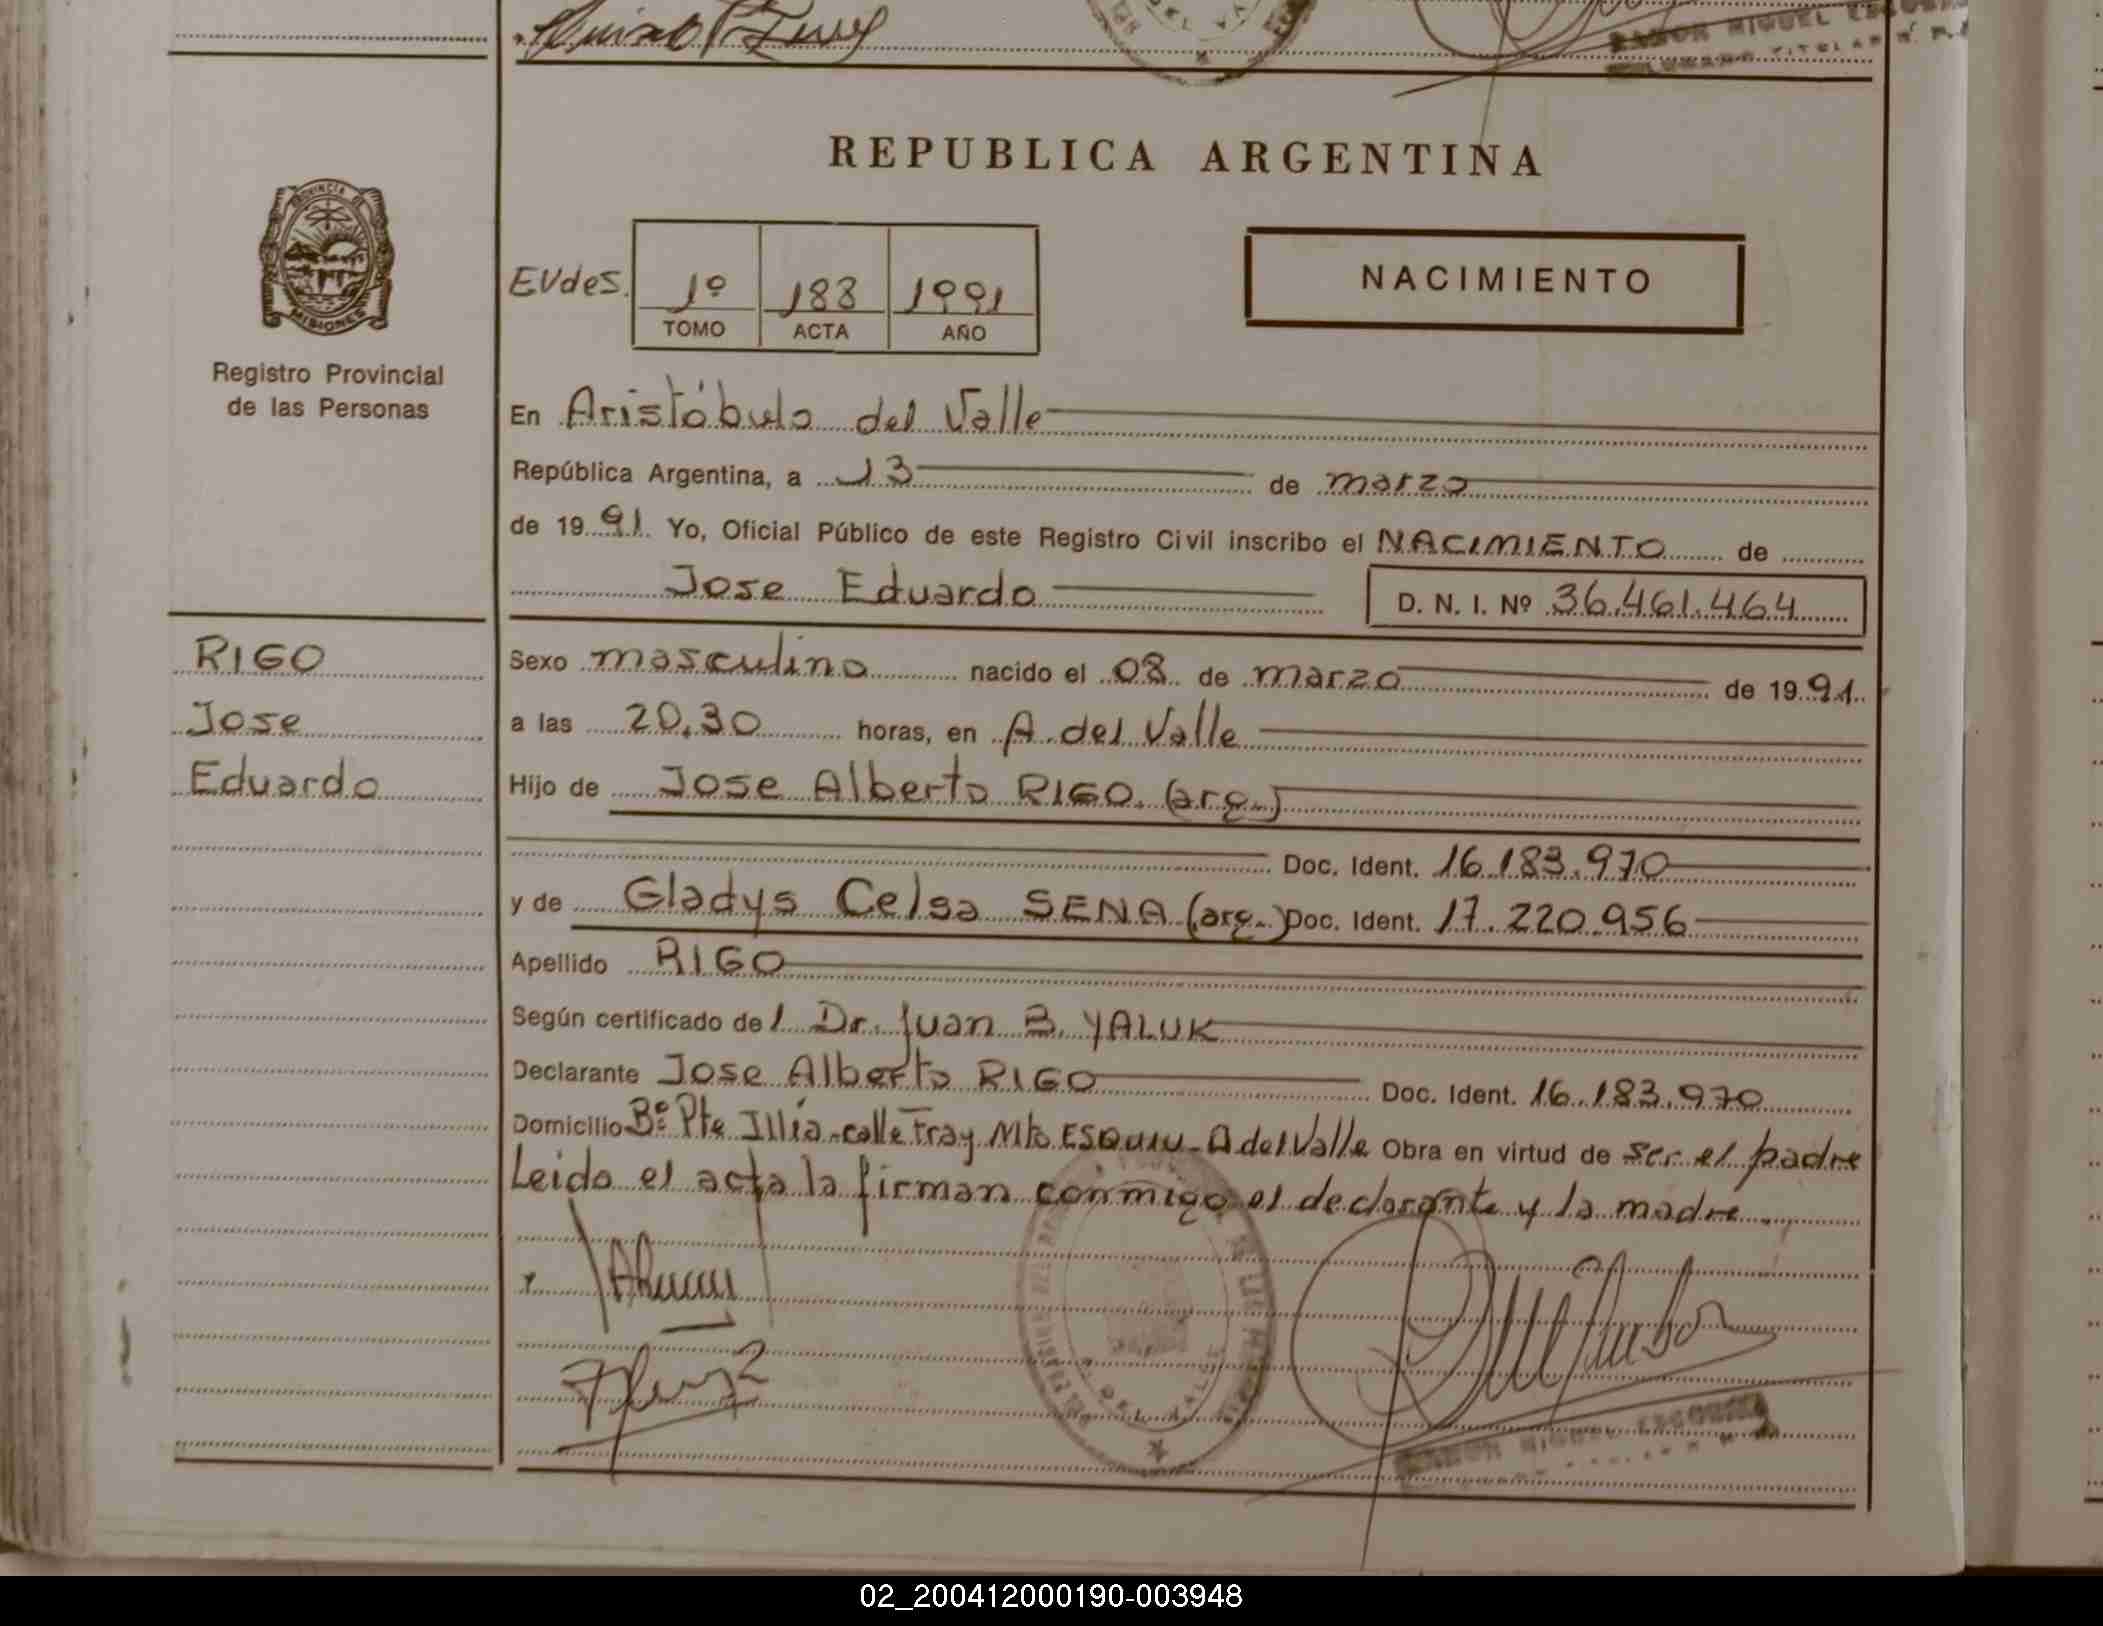 RAMON MIGUEL
REPUBLICA ARGENTINA
PROVINCIA
MISIONES
EVdes.
1º 188 1991
TOMO ACTA AÑO
NACIMIENTO
Registro Provincial
de las Personas
En Aristóbulo del Valle
República Argentina, a 13 de marzo
de 1991 Yo, Oficial Público de este Registro Civil inscribo el NACIMIENTO de
Jose Eduardo D. N. I. Nº 36.461.464
RIGO
Jose
Eduardo
Sexo masculino nacido el 08 de marzo de 1991
a las 20,30 horas, en A. del Valle
Hijo de Jose Alberto RIGO. (arg.)
Doc. Ident. 16.183.970
y de Gladys Celsa SENA (arg.) Doc. Ident. 17.220.956
Apellido RIGO
Según certificado del Dr. Juan B. YALUK
Declarante Jose Alberto RIGO Doc. Ident. 16.183.970
Domicilio Bº Pte Illia-calle Fray Mto ESQUIU-A del Valle Obra en virtud de ser el padre
Leido el acta la firman conmigo el declarante y la madre.
A. DEL VALLE
RAMON MIGUEL
02_200412000190-003948